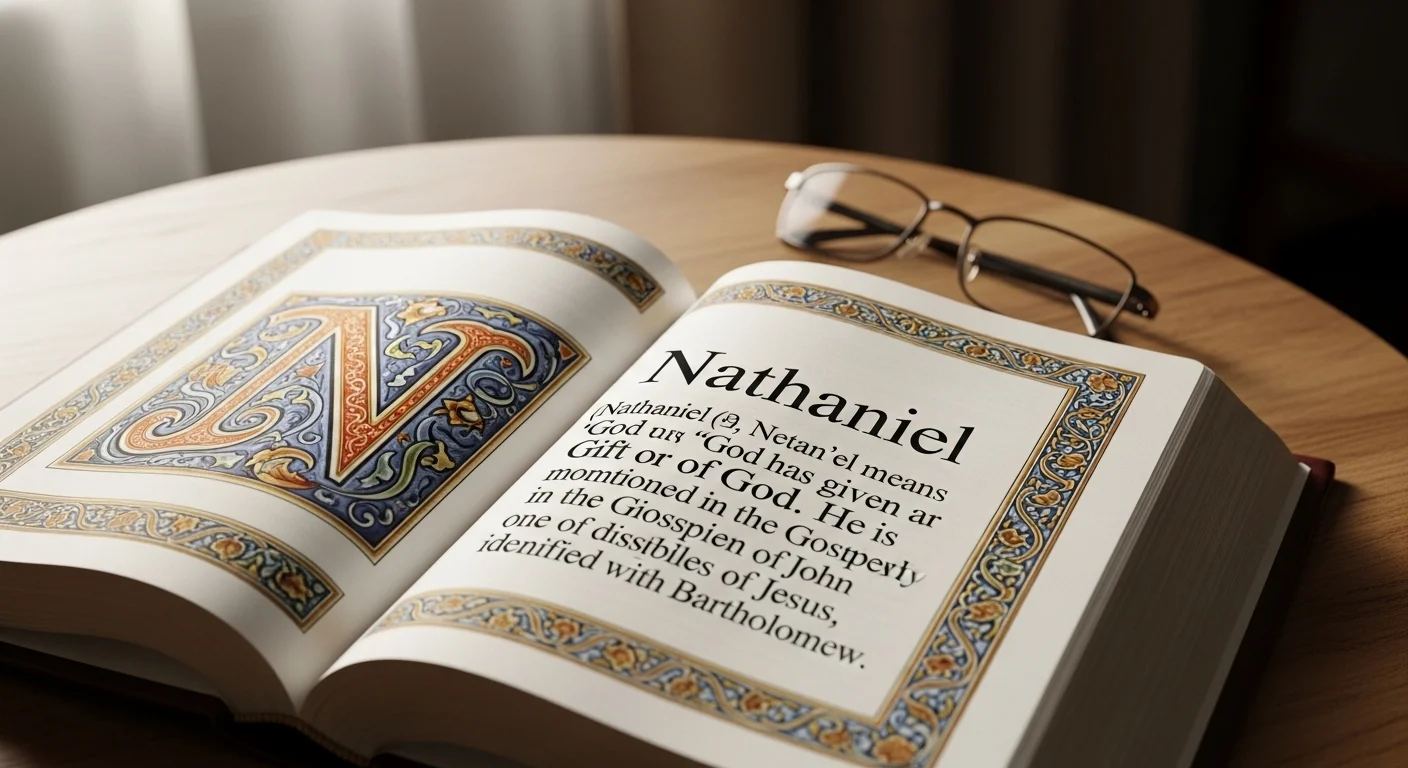 N
Nathaniel
(Nathaniel (, Netan'el means
'God "God has given ar
Gift or of God. He is
momtioned in the Gostperly
in the Giosspien of John
one of dissibiles of Jesus,
idenified with Bartholomew.